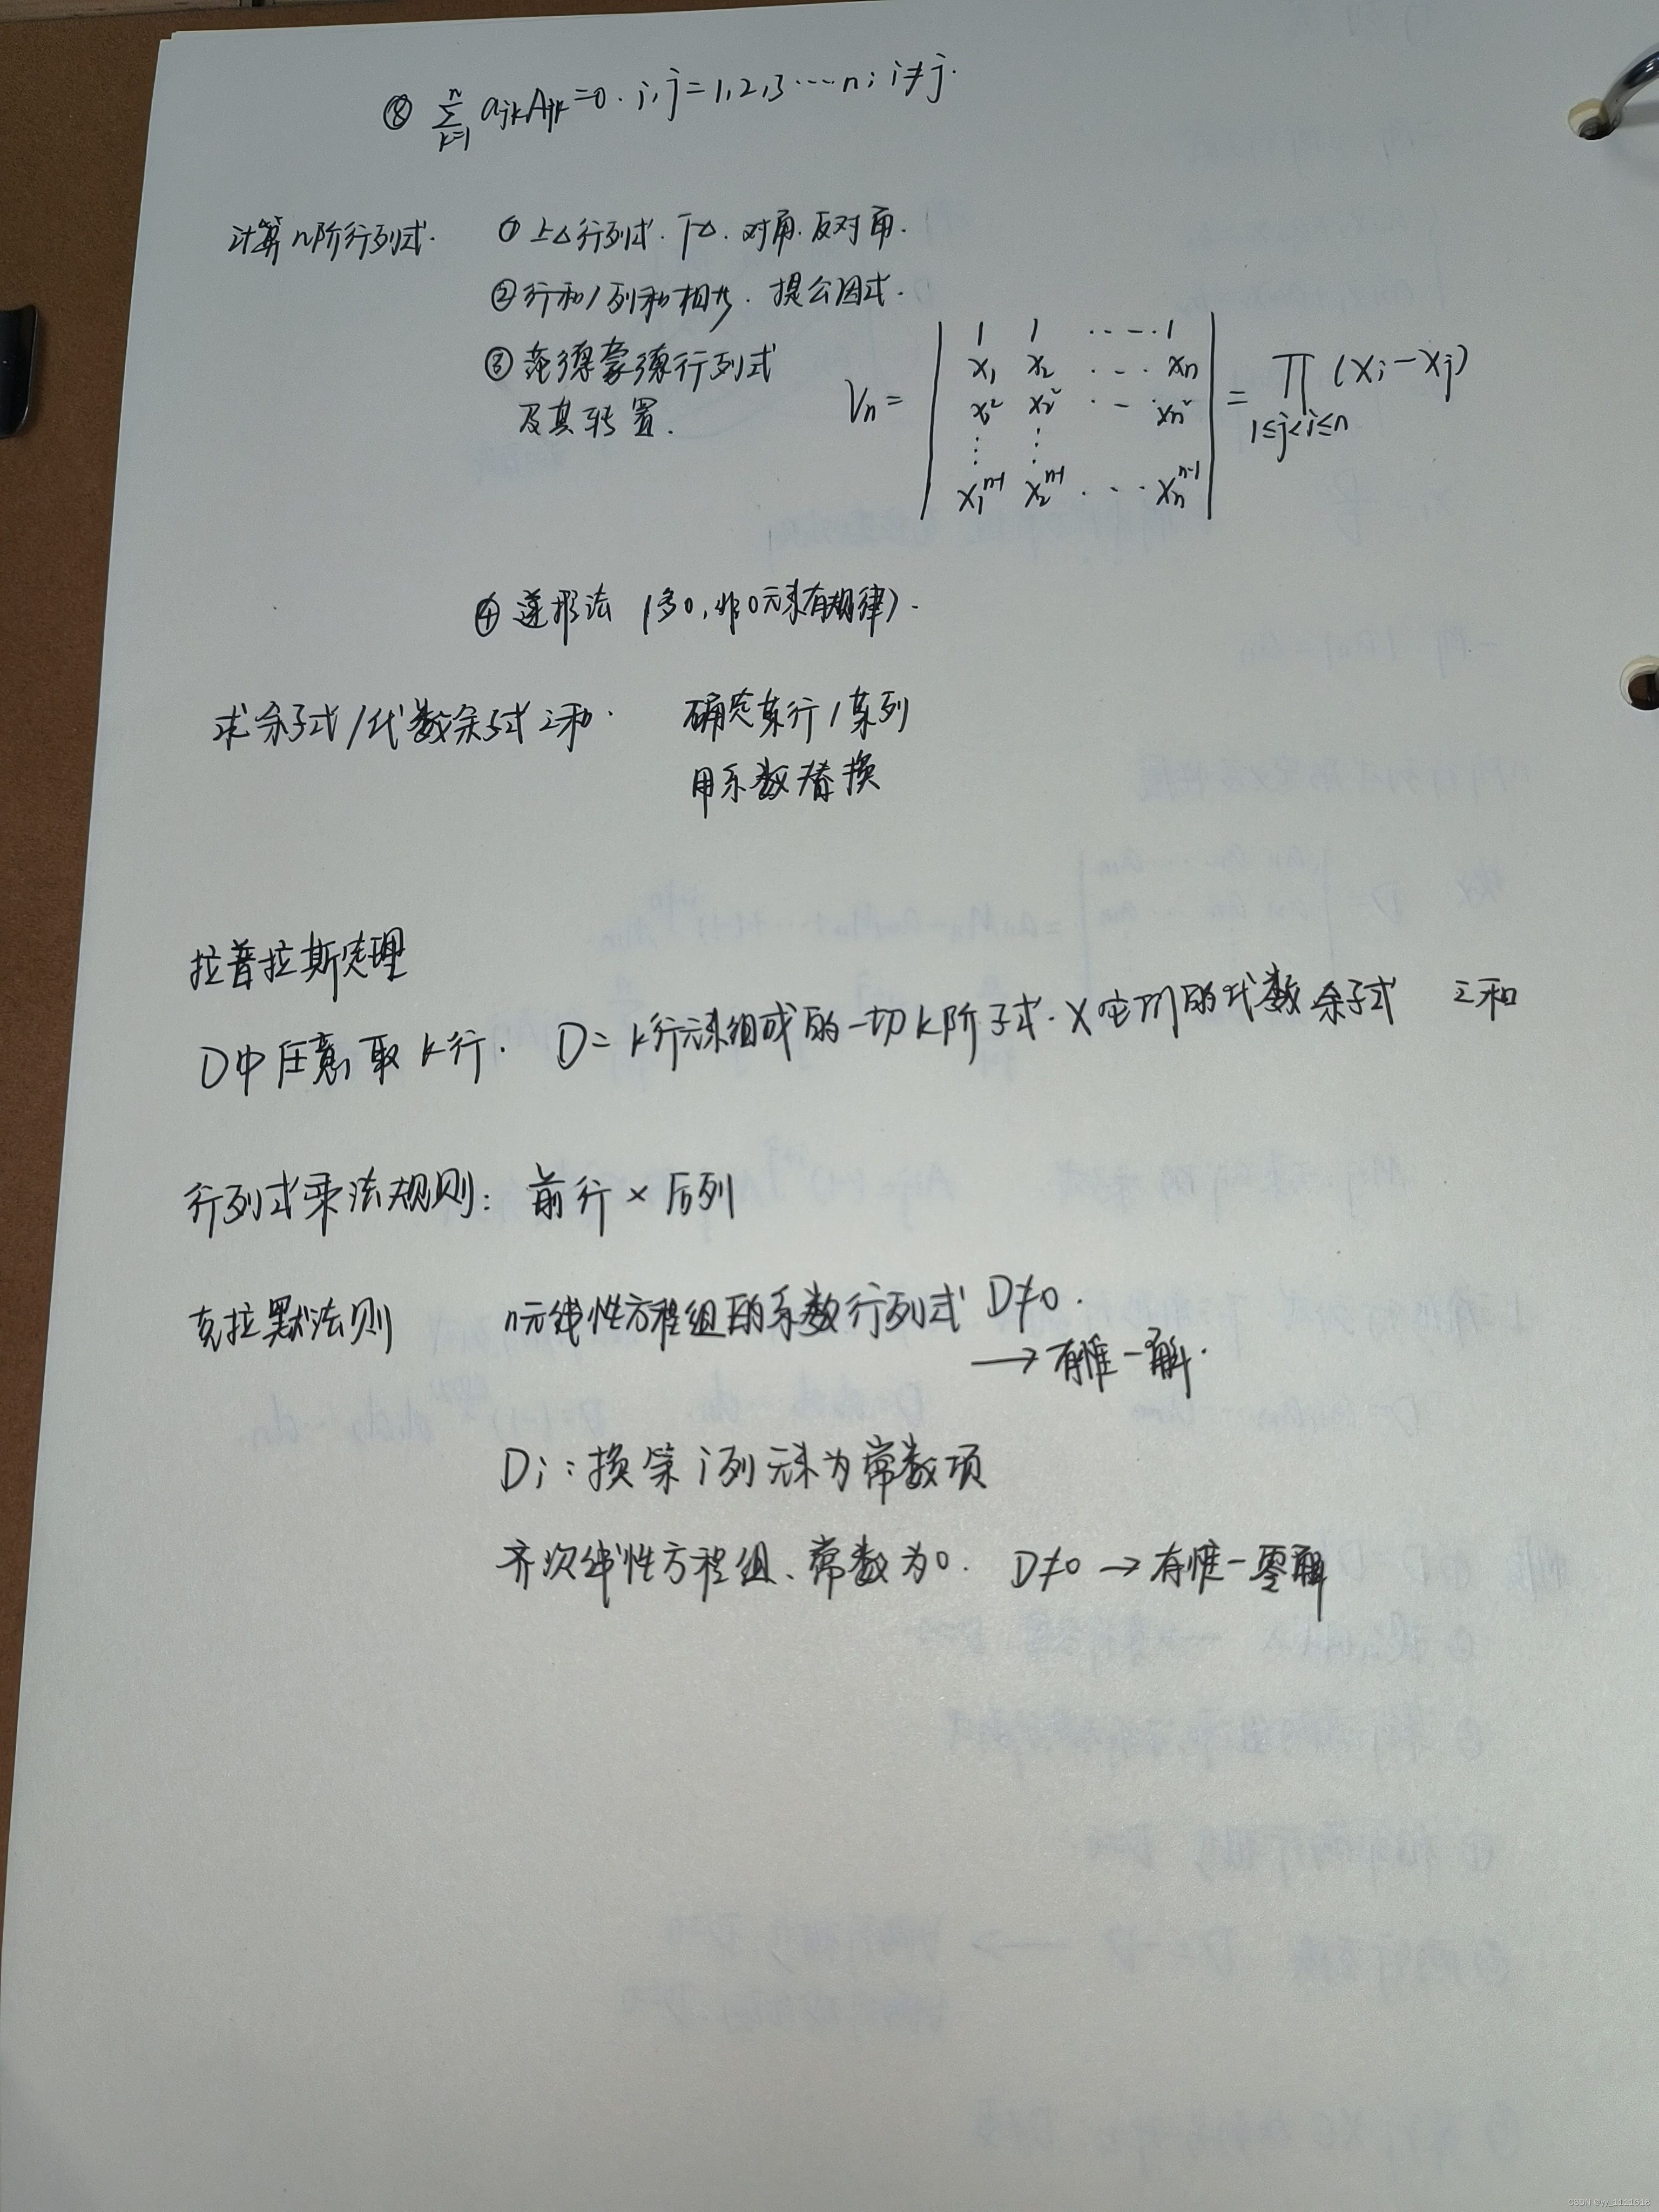 ⑧ ∑_{k=1}^{n} a_{jk}A_{jk}=0. i,j=1,2,3……n; i≠j.
计算n阶行列式. ① 上△行列式. 下△. 对角. 反对角.
② 行和/列和相等. 提公因式.
③ 范德蒙德行列式
及其转置.
V_n = | 1 1 ····· 1 |
| x_1 x_2 ··· x_n |
| x_1^2 x_2^2 ··· x_n^2 |
| ⋮ ⋮ |
| x_1^{n-1} x_2^{n-1} ··· x_n^{n-1} | = ∏_{1≤j<i≤n} (x_i-x_j)
④ 递推法 (多0,非0元素有规律).
求余子式/代数余子式之和. 确定某行/某列
用系数替换
拉普拉斯定理
D中任意取k行. D=k行元素组成的一切k阶子式. ×它们的代数余子式 之和
行列式乘法规则: 前行×后列
克拉默法则 n元线性方程组的系数行列式 D≠0.
→有惟一解.
D_i: 换第i列元素为常数项
齐次线性方程组、常数为0. D≠0→有惟一零解
CSDN @yy_1111618